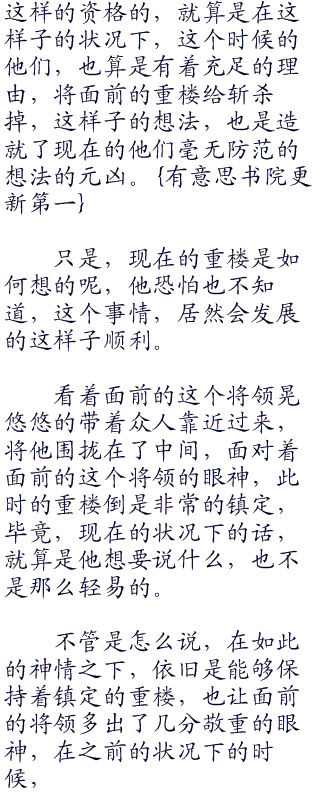 这样的资格的，就算是在这
样子的状况下，这个时候的
他们，也算是有着充足的理
由，将面前的重楼给斩杀
掉，这样子的想法，也是造
就了现在的他们毫无防范的
想法的元凶。{有意思书院更
新第一}
只是，现在的重楼是如
何想的呢，他恐怕也不知
道，这个事情，居然会发展
的这样子顺利。
看着面前的这个将领晃
悠悠的带着众人靠近过来，
将他围拢在了中间，面对着
面前的这个将领的眼神，此
时的重楼倒是非常的镇定，
毕竟，现在的状况下的话，
就算是他想要说什么，也不
是那么轻易的。
不管是怎么说，在如此
的神情之下，依旧是能够保
持着镇定的重楼，也让面前
的将领多出了几分敬重的眼
神，在之前的状况下的时
候，